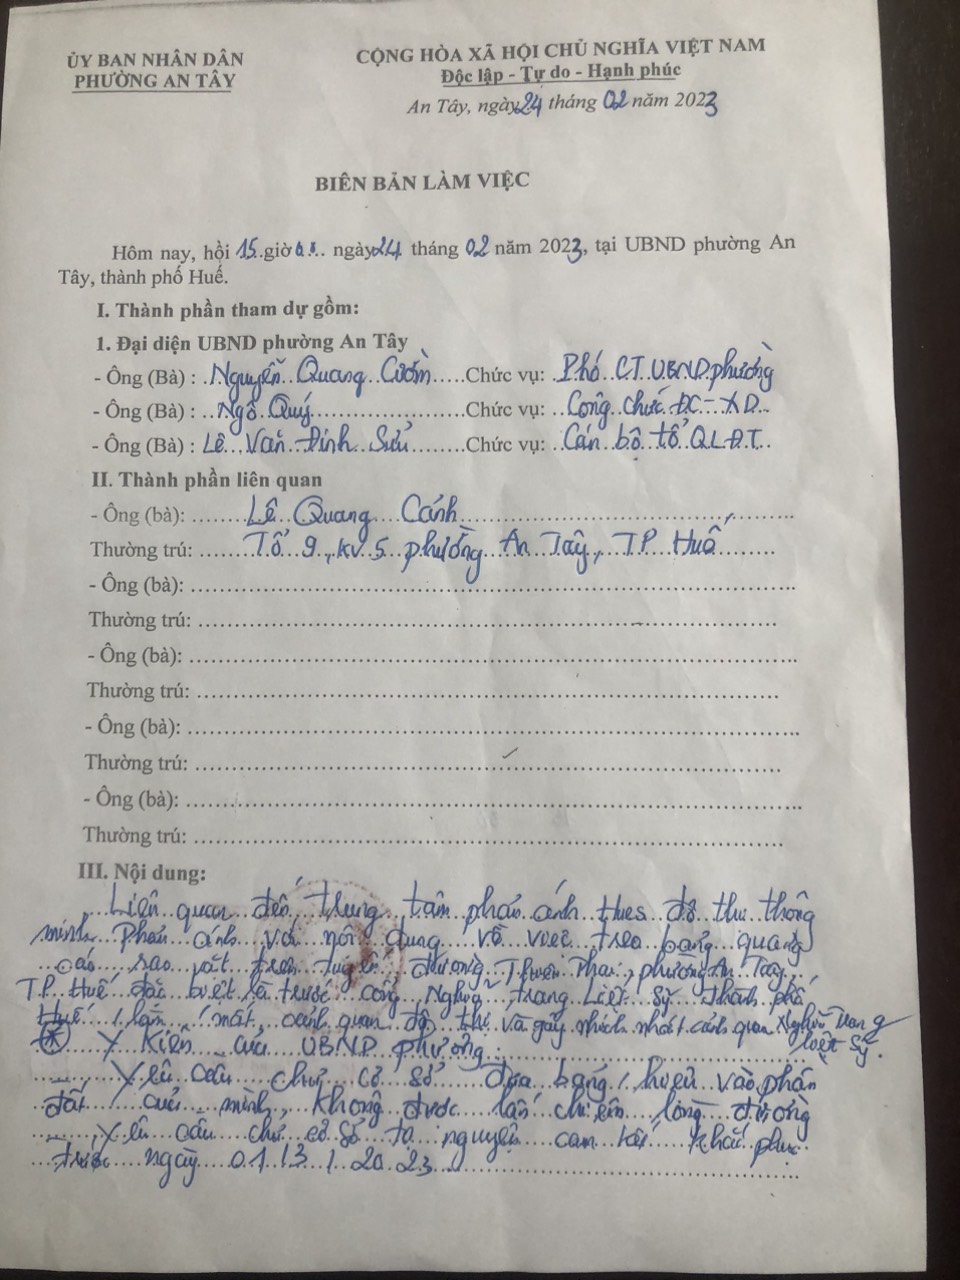 ỦY BAN NHÂN DÂN
PHƯỜNG AN TÂY
CỘNG HÒA XÃ HỘI CHỦ NGHĨA VIỆT NAM
Độc lập - Tự do - Hạnh phúc
An Tây, ngày 24 tháng 02 năm 2023
BIÊN BẢN LÀM VIỆC
Hôm nay, hồi 15 giờ ngày 24 tháng 02 năm 2023, tại UBND phường An
Tây, thành phố Huế.
I. Thành phần tham dự gồm:
1. Đại diện UBND phường An Tây
- Ông (Bà) : Nguyễn Quang Cườm Chức vụ: Phó CT UBND phường
- Ông (Bà) : Ngô Quý Chức vụ: Công chức ĐC-XD
- Ông (Bà) : Lê Văn Đình Sửu Chức vụ: Cán bộ tổ QLĐT
II. Thành phần liên quan
- Ông (bà): Lê Quang Cánh
Thường trú: Tổ 9, KV 5 phường An Tây, TP Huế
- Ông (bà):
Thường trú:
- Ông (bà):
Thường trú:
- Ông (bà):
Thường trú:
- Ông (bà):
Thường trú:
III. Nội dung:
Liên quan đến trung tâm phản ánh Hues đô thị thông
minh phản ánh với nội dung về việc treo bảng quảng
cáo, rao vặt trên tuyến đường, phường An Tây,
TP Huế đặc biệt là trước cổng Nghĩa trang Liệt sỹ thành phố
Huế làm mất cảnh quan đô thị và gây nhếch nhác cảnh quan Nghĩa trang
liệt sỹ.
Ý kiến của UBND phường:
Yêu cầu chủ cơ sở đưa bảng hiệu vào phần
đất của mình, không được lấn chiếm lòng đường
Yêu cầu chủ cơ sở tự nguyện cam kết khắc phục
trước ngày 01/3/2023